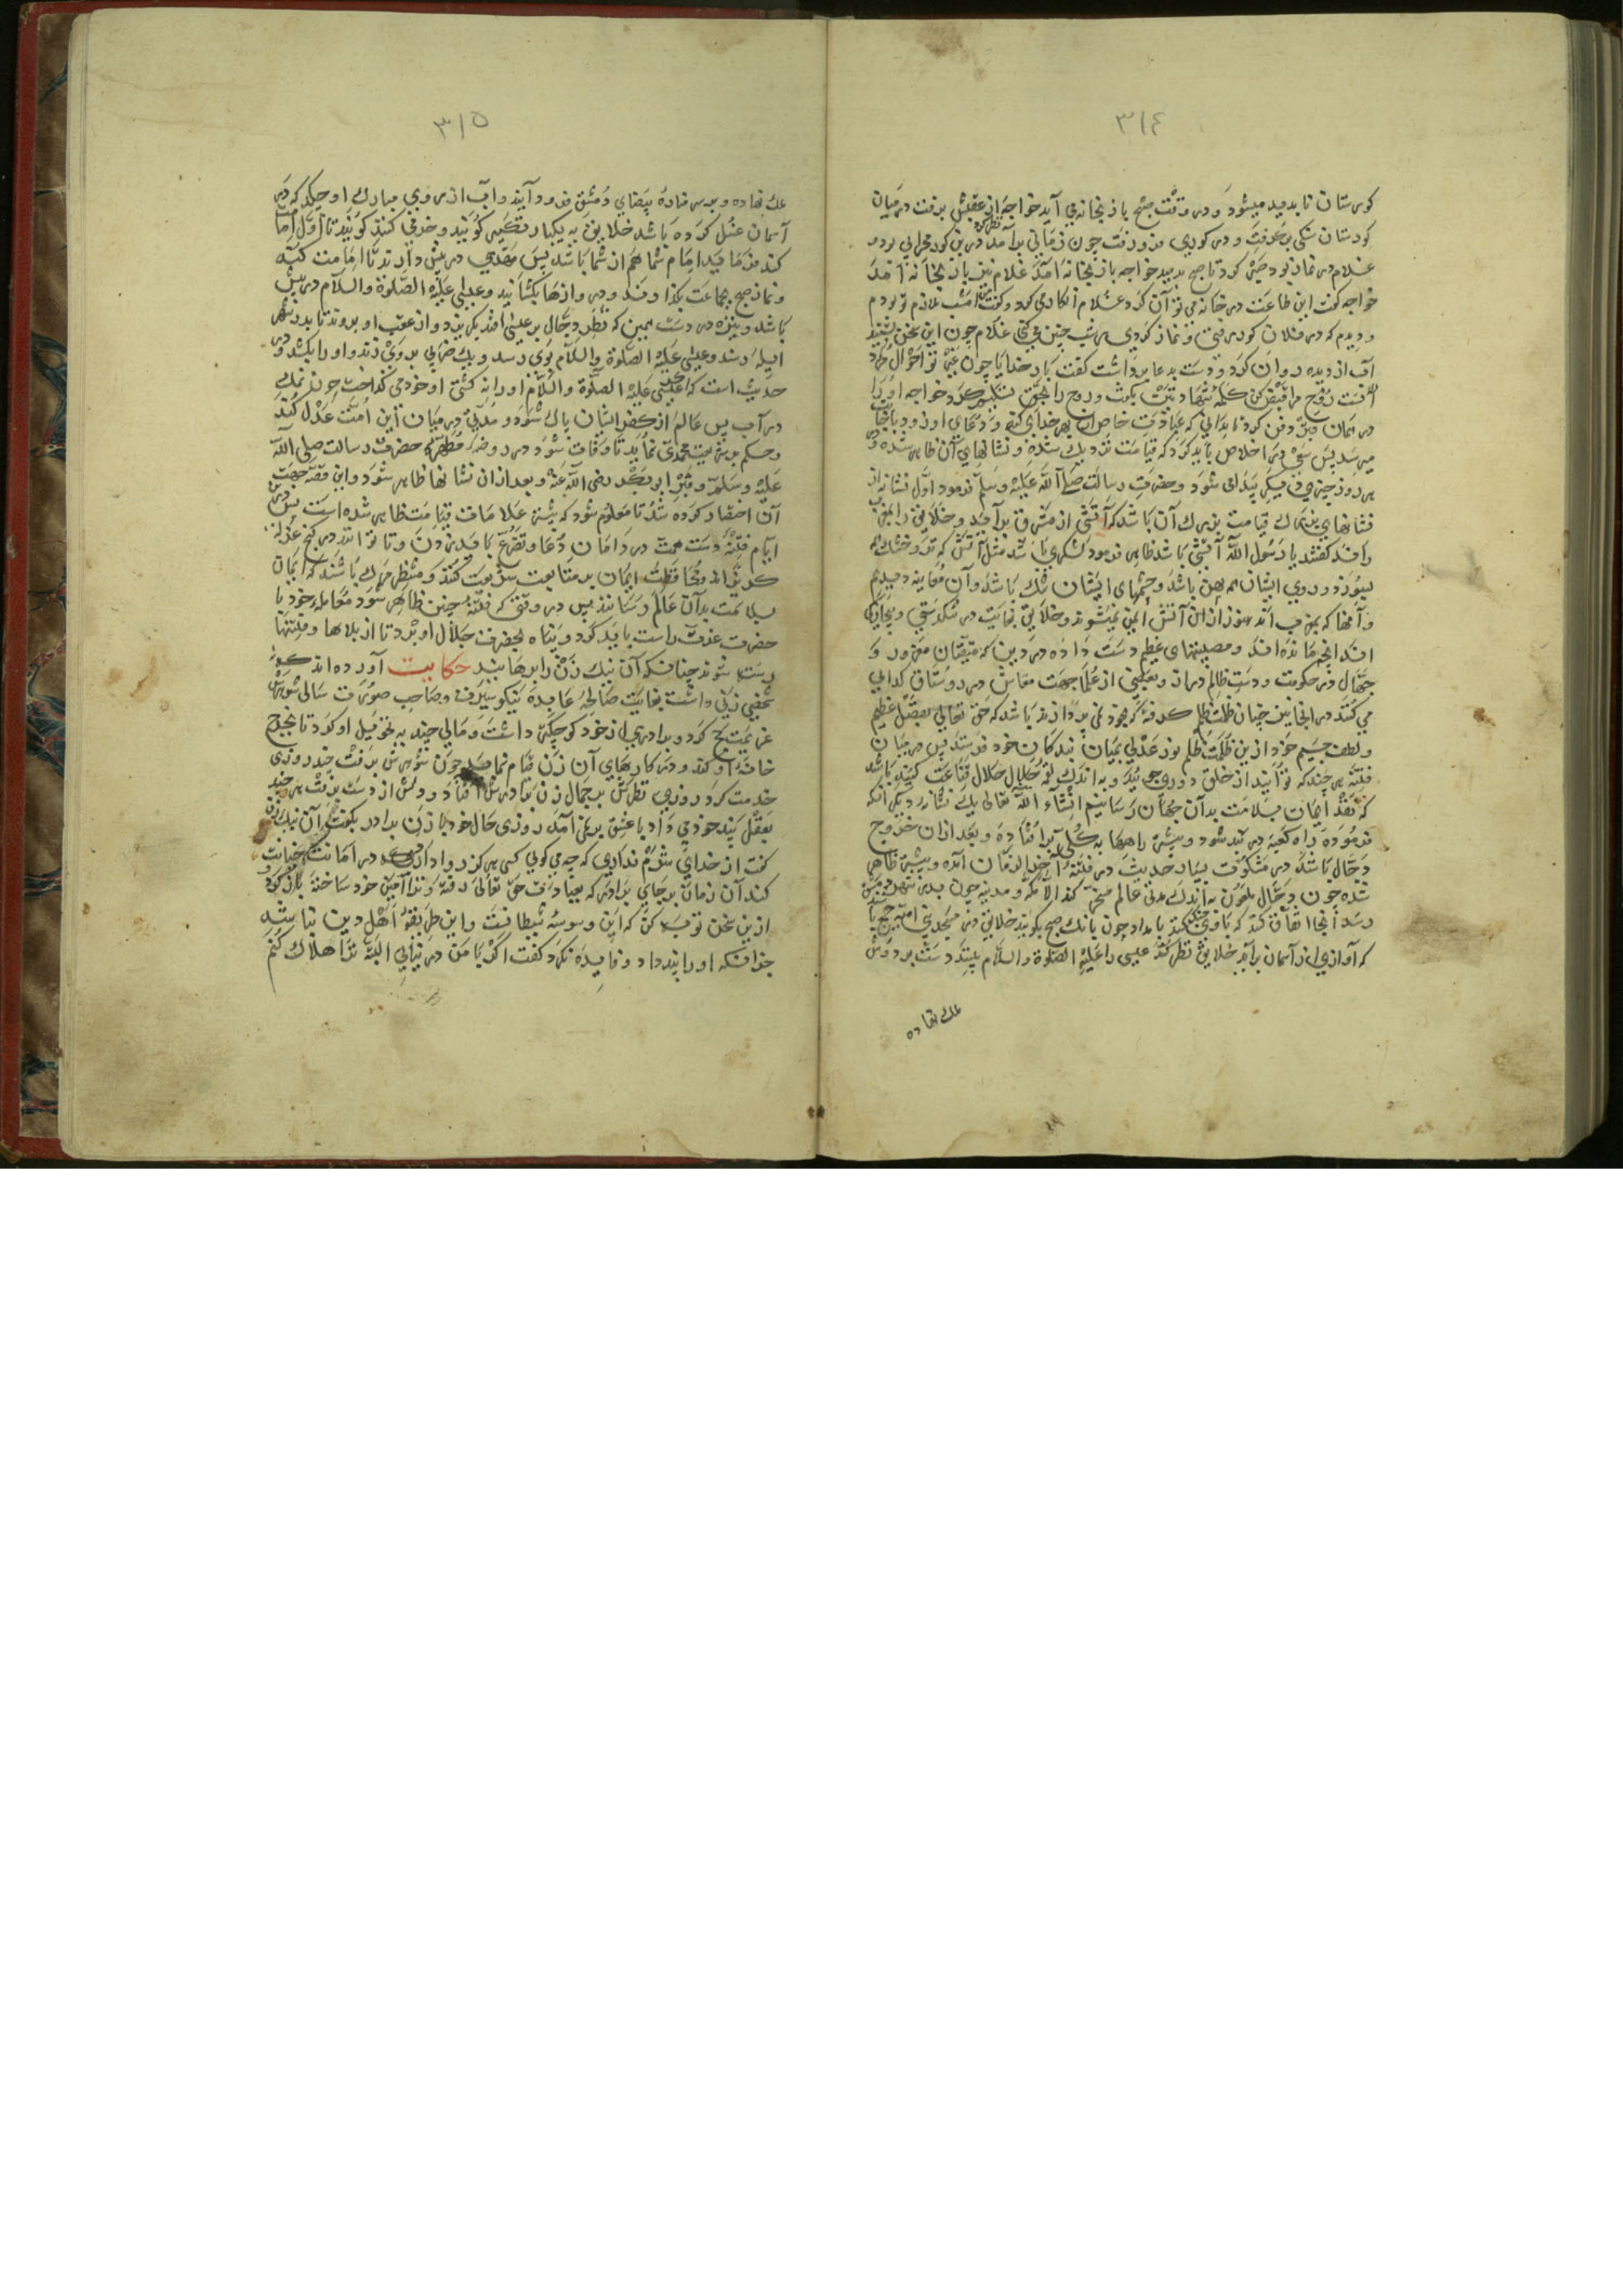 ٣١٤
کورستان نا بدید میشود و در وقت صبح باز بخانه می آید خواجه از عقبش برفت در میان
کورستان و در کوری فرو رفت چون زمانی برآمد درین کور محرابی بود
غلام در نماز بود تا صبح بدمید خواجه باز بخانه آمد غلام نیز باز بخانه آمد
خواجه گفت این طاعت در خانه می توان کرد غلام انکار می کرد و گفت امشب ملازم تو بودم
و دیدم که در فلان کور رفتی و نماز کردی هر شب چنین می کنی غلام چون این سخن بشنید
آب از دیده روان کرد و دست بدعا برداشت گفت بار خدایا چون غیر تو احوال
روح مرا قبض کن کلمه شهادت بگفت و روح را بحق تسلیم کرد خواجه او را
در همان قبر دفن کرد تا بدانی که عبادت خاص از بهر خدای کند و دعای او زود باجابت
میرسد پس سعی در اخلاص باید کرد که قیامت نزدیک شده و نشانهای آن ظاهر شده و
هر روز چیزی دیگر پیدا می شود و حضرت رسالت صلی الله علیه و سلم فرمود اول نشانه از
نشانهای بزرگ قیامت آن باشد که آتشی از مشرق برآید و خلایق را بمغرب
راند گفتند یا رسول الله آتشی باشد ظاهر فرمود لشکری باشد مثل آتش که تر و خشک همه
بسوزد و روی ایشان پهن باشد و چشمهای ایشان تنگ باشد و آن معاینه دیدیم
و آنها که بمغرب اند هنوز از آن آتش ایمن نمیشوند و خلایق بغایت در تنگدستی و بیچارگی
اند آنچه مانده اند و مصیبتهای عظیم دست داده در دین که متقیان مقهور و
جهال در حکومت و دست ظالم دراز و بعضی از علما جهت معاش در روستاق گدایی
می کنند در آنجا نیز چنان ظلمت ظلم گرفته که بخود نمی پردازند باشد که حق تعالی بفضل عظیم
و لطف جسیم خود ازین ظلمت ظلم نور عدلی بمیان بندگان خود فرستد پس در میان
فتنه هر چند که توانید از خلق دوری جویید و به اندک لقمه حلال قناعت کنید باشد
که نقد ایمان بسلامت بدان جهان رسانیم انشاء الله تعالی یک نشانه دیگر آنکه
فرموده راه کعبه در بند شود و بیشتر راهها به کلی برافتاده و بعد از آن خروج
دجال باشد در مشکوت بسیار حدیث در فتنه آخر الزمان آمده و بیشتر ظاهر
شده چون دجال ملعون به اندک مدتی عالم مسخر کند الا مکه و مدینه چون بدر شهر دمشق
رسد آنجا اتفاق کنند که با وی جنگ کنند بامداد چون بانگ صبح بگویند خلایق در مسجد بنی امیه جمع باشند
که آوازی از آسمان برآید خلایق نظر کنند عیسی را علیه الصلوة والسلام بینند دست بر دوش
ملک نهاده
٣١٥
ملک نهاده و بر مناره بیضای دمشق فرود آیند و آب از روی مبارک او چکد که در
آسمان غسل کرده باشد خلایق به یکبار تکبیر گویند و خرمی کنند گویند تا اول امامت
کند فرماید امام شما هم از شما باشد پس مهدی در پیش دارند تا امامت کند
و نماز صبح بجماعت بگذارند و دروازها بگشایند و عیسی علیه الصلوة والسلام در پیش
باشد و نیزه در دست همین که نظر دجال بر عیسی افتد بگریزد و از عقب او بروند تا بدر شهر
ایله رسند و عیسی علیه الصلوة والسلام بوی رسد و یک ضربی بر وی زند و او را بکشد و در
حدیث است که اگر عیسی علیه الصلوة والسلام او را نه کشتی او خود می گداخت چون نمک
در آب پس عالم از کفر ایشان پاک شود و مدتی در میان این امت عدل کند
و حکم بر شریعت محمدی نماید تا وفات شود در روضه مطهر حضرت رسالت صلی الله
علیه و سلم و قبر ابو بکر رضی الله عنه و بعد از آن نشانها ظاهر شود و این قصه جهت
آن اختصار کرده شد تا معلوم شود که بیشتر علامات قیامت ظاهر شده است پس درین
ایام فتنه دست همت در دامان دعا و تضرع باید زدن و تا توانند در کنج عزلت
گریزند و محافظت ایمان بر متابعت شریعت کنند و منتظر مرگ باشند که ایمان
بسلامت بدان عالم رسانند پس در وقتی که فتنه چنین ظاهر شود معامله خود با
حضرت عزت راست باید کرد و پناه بحضرت جلال او برد تا از بلاها و فتنها
رسته شوند چنانکه آن نیک زن را برهانید حکایت آورده اند که
شخصی زنی داشت بغایت صالحه عابده نیکو سیرت و صاحب صورت سالی شوهرش
عزیمت حج کرد و برادری از خود کوچکتر داشت و مالی چند به تحویل او کرد تا بخرج
خانه او کند و در کارهای آن زن قیام نماید چون شوهرش برفت چند روزی
خدمت کرد روزی نظرش بر جمال زن برادرش افتاد و دلش از دست برفت هر چند
بعقل پند خود می داد با عشق بر نمی آمد روزی حال خود با زن برادر بگفت آن نیک زن
گفت از خدای شرم نداری که چه می گویی کسی هرگز روا دارد که در امانت خیانت
کند آن زمان برجای برادر که بعبادت حق تعالی رفته و ترا امین خود ساخته باز گرد
ازین سخن توبه کن که این وسوسه شیطانیست و این طریقه اهل دین نباشد
چندانکه او را پند داد و فایده نکرد گفت اگر با من در نیایی البته ترا هلاک کنم